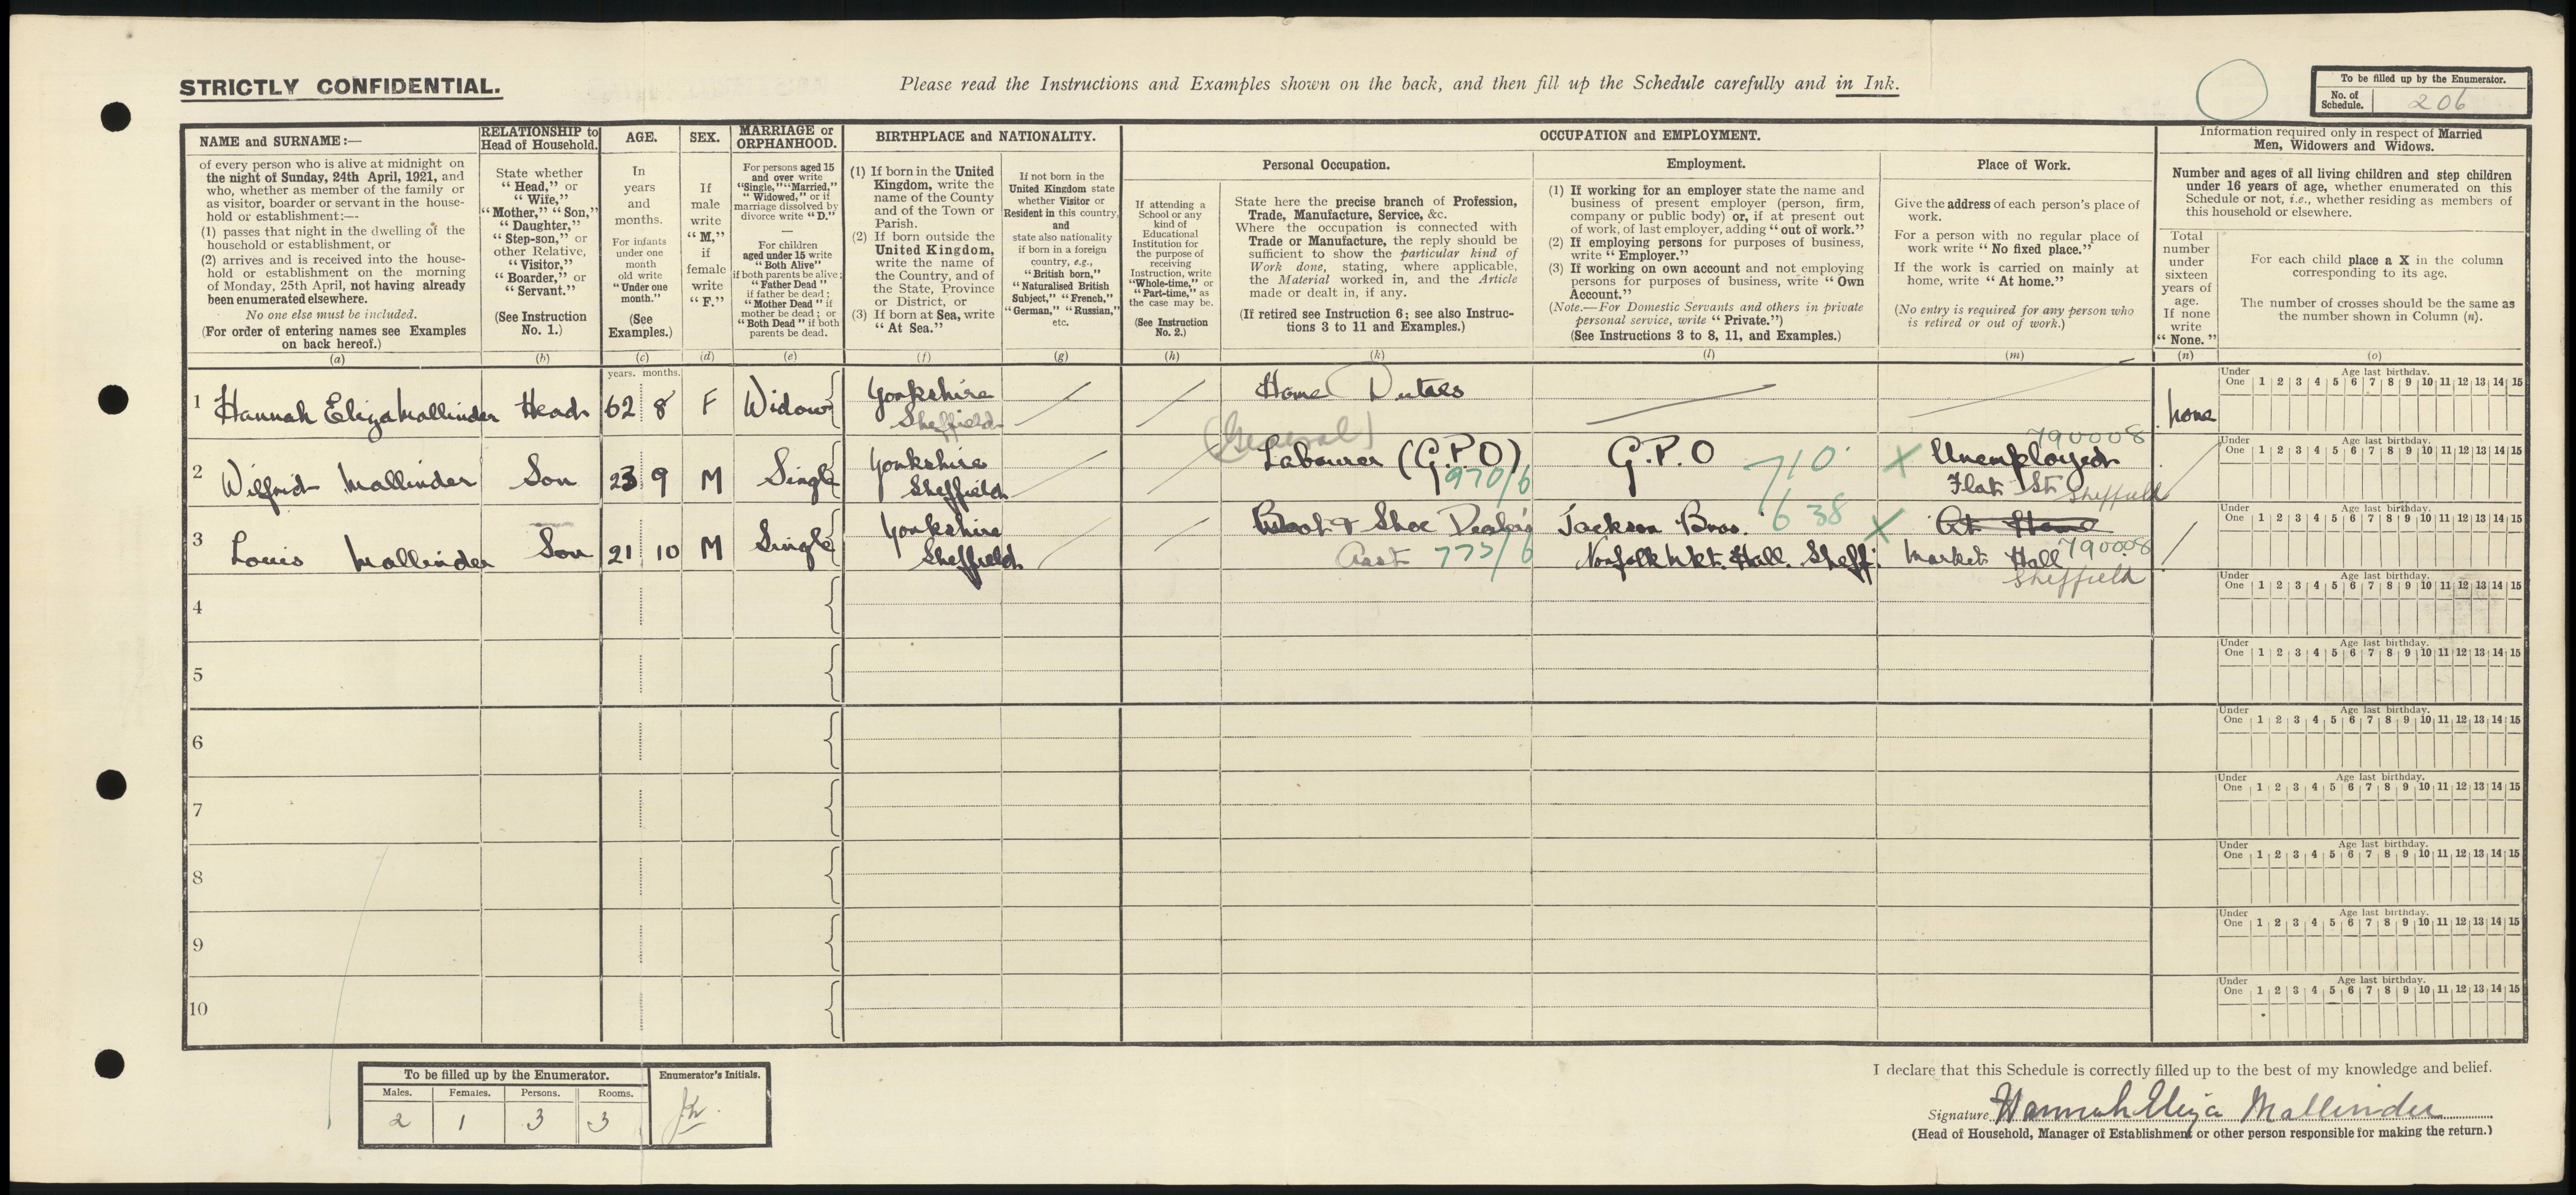 STRICTLY CONFIDENTIAL.
Please read the Instructions and Examples shown on the back, and then fill up the Schedule carefully and in Ink.
To be filled up by the Enumerator.
No. of Schedule. 206
NAME and SURNAME:—
of every person who is alive at midnight on
the night of Sunday, 24th April, 1921, and
who, whether as member of the family or
as visitor, boarder or servant in the house-
hold or establishment:—
(1) passes that night in the dwelling of the
household or establishment, or
(2) arrives and is received into the house-
hold or establishment on the morning
of Monday, 25th April, not having already
been enumerated elsewhere.
No one else must be included.
(For order of entering names see Examples
on back hereof.)
(a)
RELATIONSHIP to
Head of Household.
State whether
"Head," or
"Wife,"
"Mother," "Son,"
"Daughter,"
"Step-son," or
other Relative,
"Visitor,"
"Boarder," or
"Servant."
(See Instruction
No. 1.)
(b)
AGE.
In
years
and
months.
For infants
under one
month
old write
"Under one
month."
(See
Examples.)
(c)
SEX.
If
male
write
"M,"
if
female
write
"F."
(d)
MARRIAGE or
ORPHANHOOD.
For persons aged 15
and over write
"Single," "Married,"
"Widowed," or if
marriage dissolved by
divorce write "D."
—
For children
aged under 15 write
"Both Alive"
if both parents be alive;
"Father Dead"
if father be dead;
"Mother Dead" if
mother be dead; or
"Both Dead" if both
parents be dead.
(e)
BIRTHPLACE and NATIONALITY.
(1) If born in the United
Kingdom, write the
name of the County
and of the Town or
Parish.
(2) If born outside the
United Kingdom,
write the name of
the Country, and of
the State, Province
or District, or
(3) If born at Sea, write
"At Sea."
(f)
If not born in the
United Kingdom state
whether Visitor or
Resident in this country,
and
state also nationality
if born in a foreign
country, e.g.,
"British born,"
"Naturalised British
Subject," "French,"
"German," "Russian,"
etc.
(g)
OCCUPATION and EMPLOYMENT.
If attending a
School or any
kind of
Educational
Institution for
the purpose of
receiving
Instruction, write
"Whole-time," or
"Part-time," as
the case may be.
(See Instruction
No. 2.)
(h)
Personal Occupation.
State here the precise branch of Profession,
Trade, Manufacture, Service, &c.
Where the occupation is connected with
Trade or Manufacture, the reply should be
sufficient to show the particular kind of
Work done, stating, where applicable,
the Material worked in, and the Article
made or dealt in, if any.
(If retired see Instruction 6; see also Instruc-
tions 3 to 11 and Examples.)
(k)
Employment.
(1) If working for an employer state the name and
business of present employer (person, firm,
company or public body) or, if at present out
of work, of last employer, adding "out of work."
(2) If employing persons for purposes of business,
write "Employer."
(3) If working on own account and not employing
persons for purposes of business, write "Own
Account."
(Note.—For Domestic Servants and others in private
personal service, write "Private.")
(See Instructions 3 to 8, 11, and Examples.)
(l)
Place of Work.
Give the address of each person's place of
work.
For a person with no regular place of
work write "No fixed place."
If the work is carried on mainly at
home, write "At home."
(No entry is required for any person who
is retired or out of work.)
(m)
Information required only in respect of Married
Men, Widowers and Widows.
Number and ages of all living children and step children
under 16 years of age, whether enumerated on this
Schedule or not, i.e., whether residing as members of
this household or elsewhere.
Total
number
under
sixteen
years of
age.
If none
write
"None."
(n)
For each child place a X in the column
corresponding to its age.
The number of crosses should be the same as
the number shown in Column (n).
(o)
years. months.
1 Hannah Eliza Mallinder Head 62 8 F Widow Yorkshire Home Duties none
Sheffield
Under One Age last birthday. 1 2 3 4 5 6 7 8 9 10 11 12 13 14 15
(General) 790008
2 Wilfrid Mallinder Son 23 9 M Single Yorkshire Labourer (G.P.O) G.P.O 710 X Unemployed
Sheffield 970/6 Flat St Sheffield
Under One Age last birthday. 1 2 3 4 5 6 7 8 9 10 11 12 13 14 15
3 Louis Mallinder Son 21 10 M Single Yorkshire Boot & Shoe Dealers Jackson Bros. 638 X At Home
Sheffield Asst 775/6 Norfolk Mkt. Hall. Sheff: Market Hall 790008
Sheffield
Under One Age last birthday. 1 2 3 4 5 6 7 8 9 10 11 12 13 14 15
4
Under One Age last birthday. 1 2 3 4 5 6 7 8 9 10 11 12 13 14 15
5
Under One Age last birthday. 1 2 3 4 5 6 7 8 9 10 11 12 13 14 15
6
Under One Age last birthday. 1 2 3 4 5 6 7 8 9 10 11 12 13 14 15
7
Under One Age last birthday. 1 2 3 4 5 6 7 8 9 10 11 12 13 14 15
8
Under One Age last birthday. 1 2 3 4 5 6 7 8 9 10 11 12 13 14 15
9
Under One Age last birthday. 1 2 3 4 5 6 7 8 9 10 11 12 13 14 15
10
Under One Age last birthday. 1 2 3 4 5 6 7 8 9 10 11 12 13 14 15
To be filled up by the Enumerator.
Males. Females. Persons. Rooms.
2 1 3 3
Enumerator's Initials.
I declare that this Schedule is correctly filled up to the best of my knowledge and belief.
Signature Hannah Eliza Mallinder
(Head of Household, Manager of Establishment or other person responsible for making the return.)